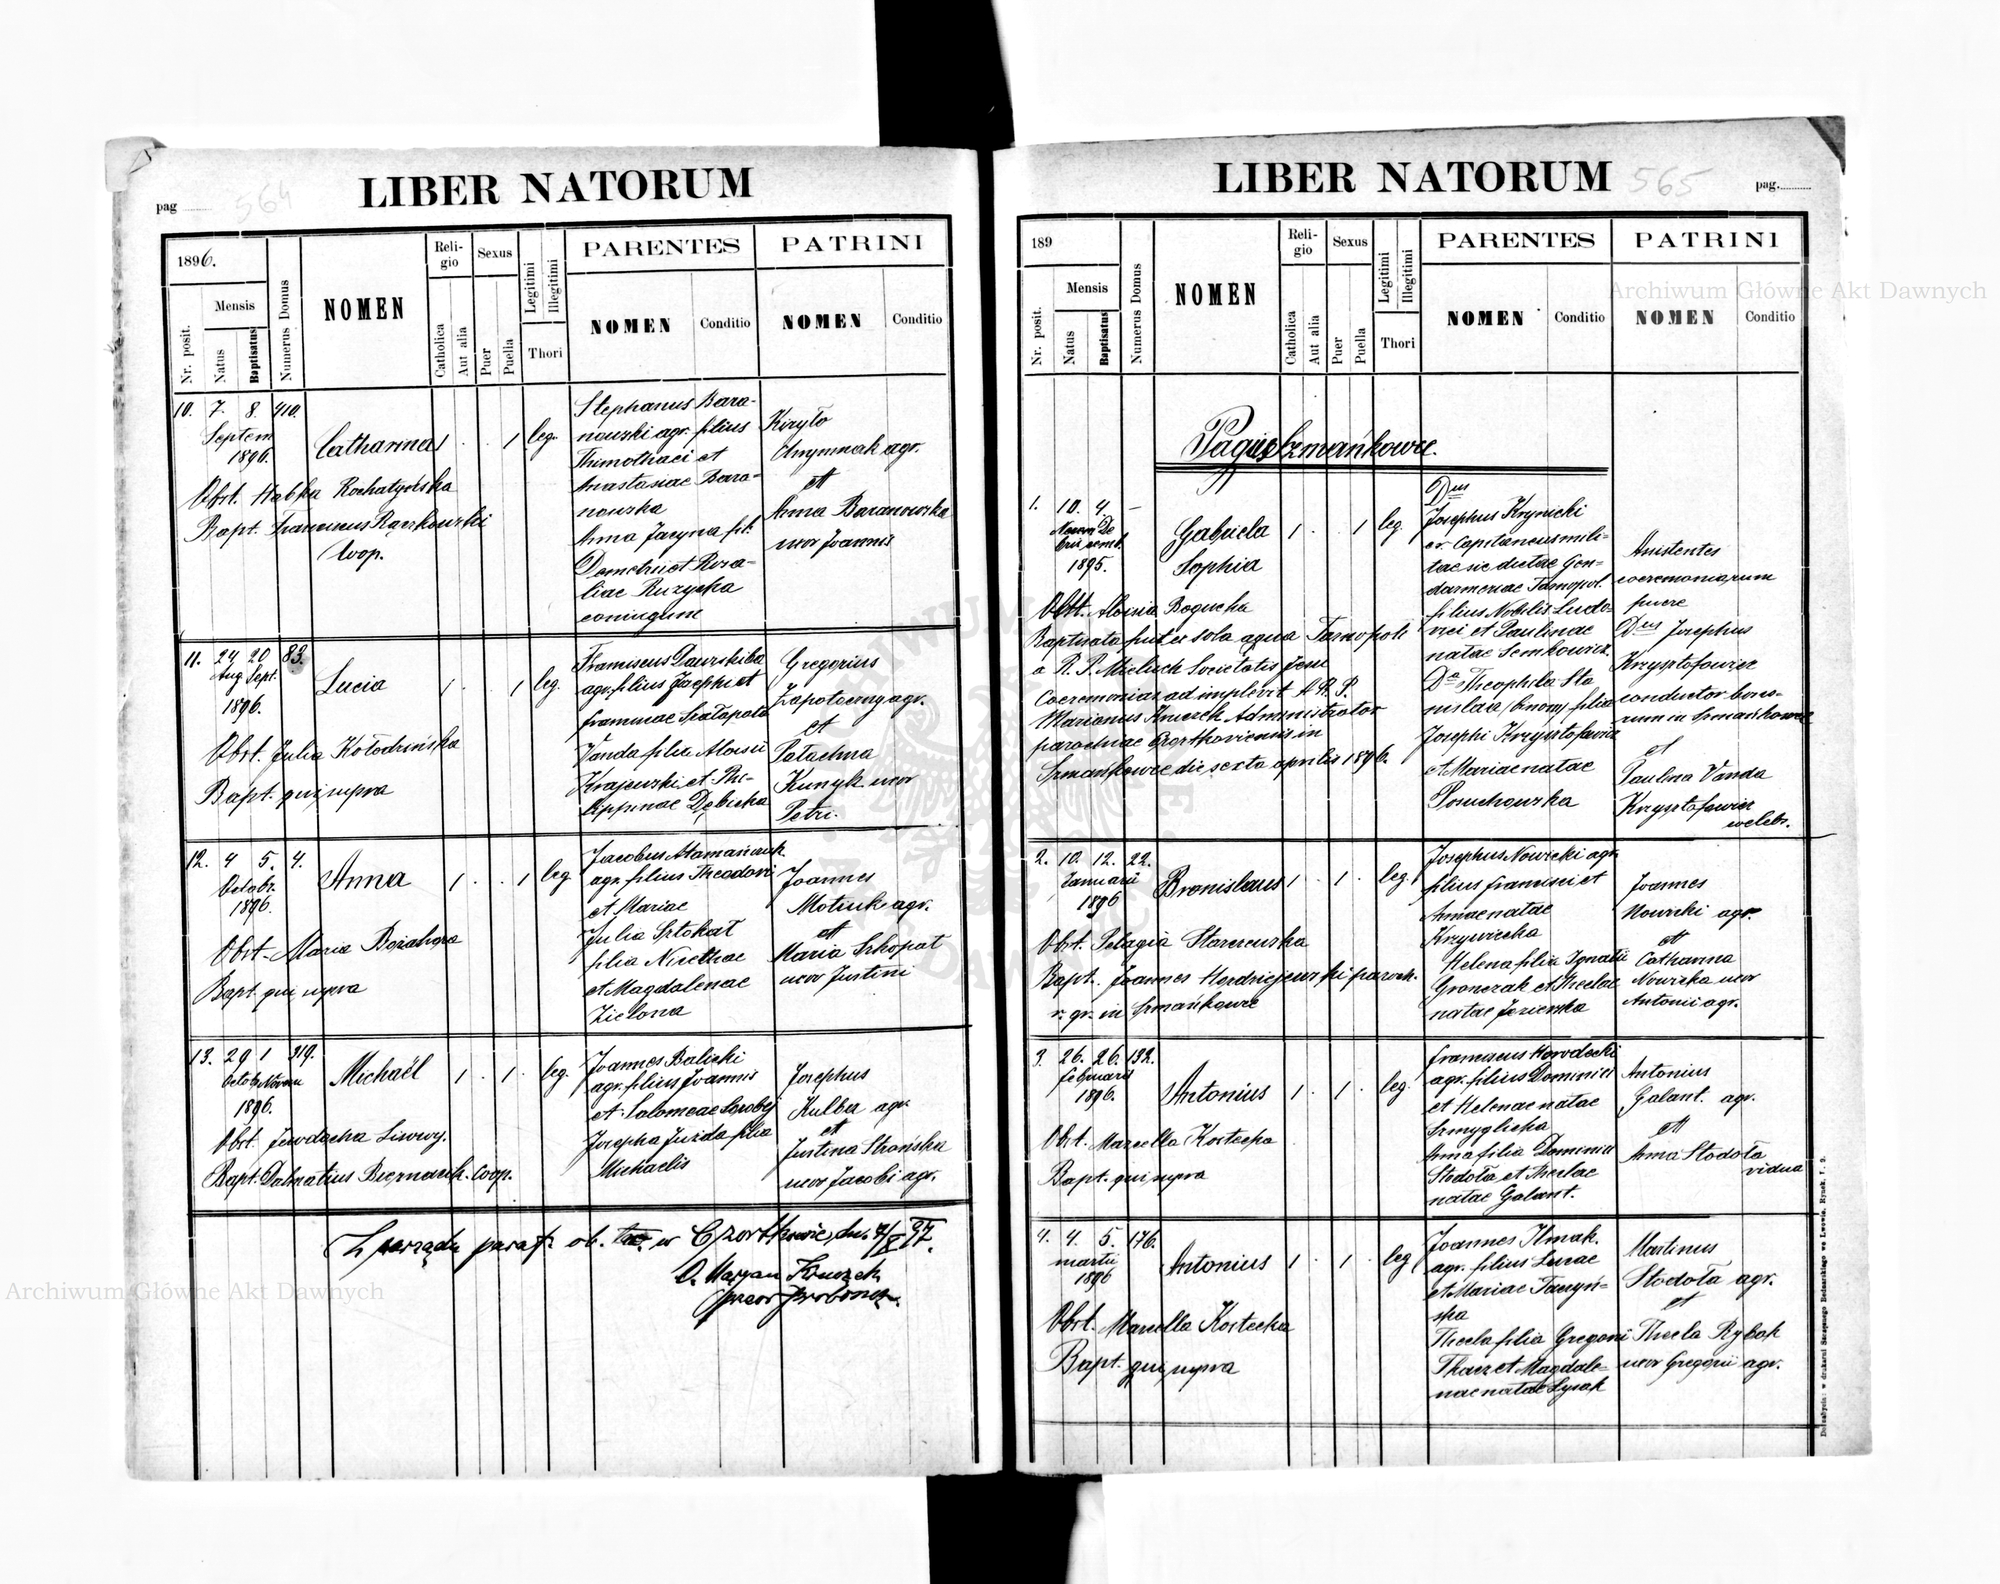 LIBER NATORUM
pag
564
1896.
Nr. posit.
Mensis
Natus
Baptisatus
Numerus Domus
NOMEN
Religio
Catholica
Aut alia
Sexus
Puer
Puella
Legitimi
Illegitimi
Thori
PARENTES
NOMEN
Conditio
PATRINI
NOMEN
Conditio
10. 7. 8. 410.
Septem
1896.
Catharina 1 . . 1 leg.
Obst. Habka Rochatyńska
Bapt. Franciscus Rączkowski
Coop.
Stephanus Bara-
nowski agr. filius
Thimothaei et
Anastasiae Bara-
nowska
Anna Jacyna fil.
Demetrii et Roza-
liae Ruzycka
coniugum
Kiryło
agr.
et
Anna Baranowska
uxor Joannis
11. 24 20 83.
Aug Sept.
1896.
Lucia 1 . . 1 leg.
Obst. Julia Kołodzińska
Bapt. qui supra
Franciscus
agr. filius Josephi et
Franciscae
Vanda filia Aloisii
Krajewski et Phi-
lippinae Dębicka
Gregorius
Zapotoczny agr.
et
Palachna
Kunyk uxor
Petri.
12. 4 5. 4.
Octobr.
1896.
Anna 1 . . 1 leg
Obst. Maria
Bapt. qui supra
Jacobus Atamańczuk
agr. filius Theodori
et Mariae
Julia Sztokał
filia Nicethae
et Magdalenae
Zielona
Joannes
Motruk agr.
et
Maria Szkopat
uxor Justini
13. 29 1 319.
Octobr. Novem
1896.
Michaël 1 . 1 . leg.
Obst. Jewdocha
Bapt. Dalmatius Biernacik. Coop.
Joannes Balicki
agr. filius Joannis
et Salomeae
Josepha Juzda filia
Michaelis
Josephus
Kulba agr.
et
Justina Strońska
uxor Jacobi agr.
Z zarządu paraf. ob. łac. w Czortkowie, dn.
O. Maryan Kruczek
LIBER NATORUM
565
pag.
189
Nr. posit.
Mensis
Natus
Baptisatus
Numerus Domus
NOMEN
Religio
Catholica
Aut alia
Sexus
Puer
Puella
Legitimi
Illegitimi
Thori
PARENTES
NOMEN
Conditio
PATRINI
NOMEN
Conditio
Pagus Szmańkowce.
1. 10. 4. –
1895.
Gabriela 1 . . 1 leg.
Sophia
Obst. Aloisia Bogucka
Baptisata fuit ex sola aqua Tarnopoli
a R. P. Mieluch Societatis Jesu
Coeremonias adimplevit A. R. P.
Marianus Kruczek Administrator
parochiae Czortkoviensis in
Szmańkowce die sexta aprilis 1896.
Dnus
Josephus Krynicki
ex. Capitaneus mili-
tae sic dictae Gen-
darmeriae Tarnopol.
filius Nobilis Ludo-
vici et Paulinae
natae Semkowicz.
Da Theophila Sta
nislaa /binom/ filia
Josephi Krzysztofowicz
et Mariae natae
Assistentes
coeremoniarum
fuere
Dnus Josephus
Krzysztofowicz
conductor bono-
rum in Szmańkowce
et
Paulina Vanda
Krzysztofowicz
coelebs.
2. 10. 12. 22.
Januarii
1896
Bronislaus 1 . 1 . leg.
Obst. Pelagia Starczewska
Bapt. Joannes paroch.
r. gr. in Szmańkowce
Josephus Nowicki agr
filius Francisci et
Annae natae
Krzywicka
Helena filia Ignatii
Gronczak et Theclae
natae Jezierska
Joannes
Nowicki agr
et
Catharina
Nowicka uxor
Antonii agr.
3. 26. 26. 132.
Februarii
1896.
Antonius 1 . 1 . leg.
Obst. Marcella Kostecka
Bapt. qui supra
Franciscus Horodecki
agr. filius Dominici
et Helenae natae
Szmyglicka
Anna filia Dominici
Stodoła et Theclae
natae Galant.
Antonius
Galant. agr.
et
Anna Stodoła
vidua
4. 4. 5. 176.
martii
1896
Antonius 1 . 1 . leg
Obst. Marcella Kostecka
Bapt. qui supra
Joannes Ilmak.
agr. filius Lucae
et Mariae Taczyń-
ska
Thecla filia Gregorii
Tkacz et Magdale-
nae natae Łysak
Martinus
Stodoła agr.
et
Thecla Rybak
uxor Gregorii agr.
Archiwum Główne Akt Dawnych
Archiwum Główne Akt Dawnych